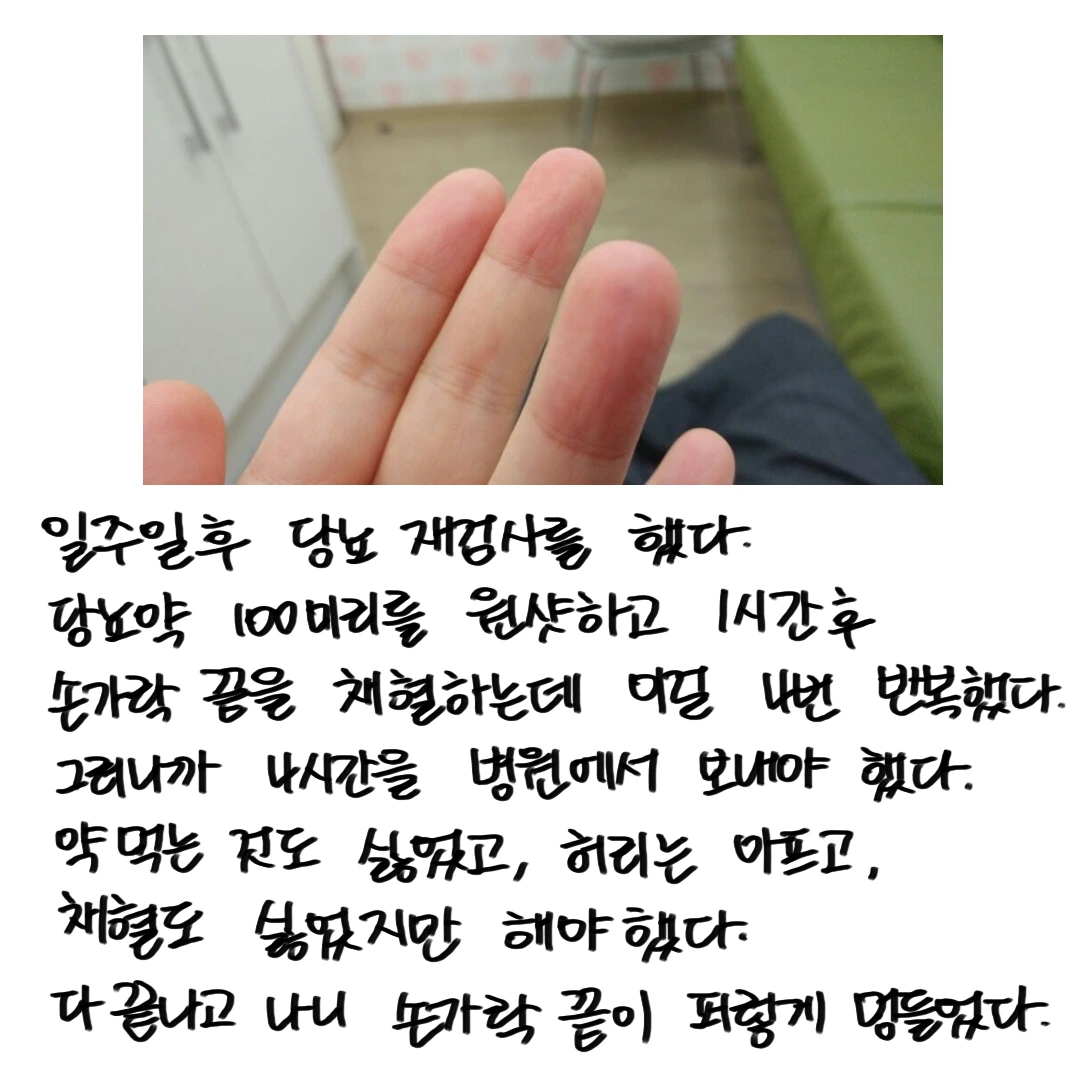 일주일후 당뇨 재검사를 했다.
당뇨약 100미리를 원샷하고 1시간 후
손가락 끝을 채혈하는데 이걸 4번 반복했다.
그러니까 4시간을 병원에서 보내야 했다.
약 먹는 것도 싫었고, 허리는 아프고,
채혈도 싫었지만 해야했다.
다 끝나고 나니 손가락 끝이 퍼렇게 멍들었다.